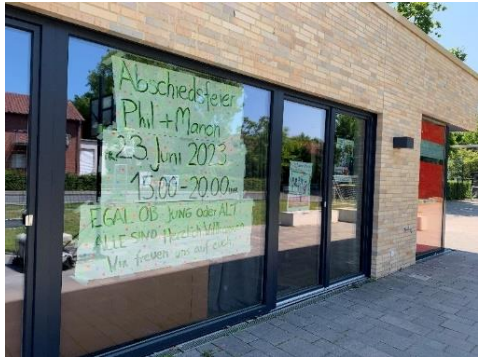 Abschiedsfeier
Phil + Manon
23. Juni 2023
15.00-20.00
EGAL OB JUNG oder ALT
ALLE SIND Herzlich Willkommen
Wir freuen uns auf euch